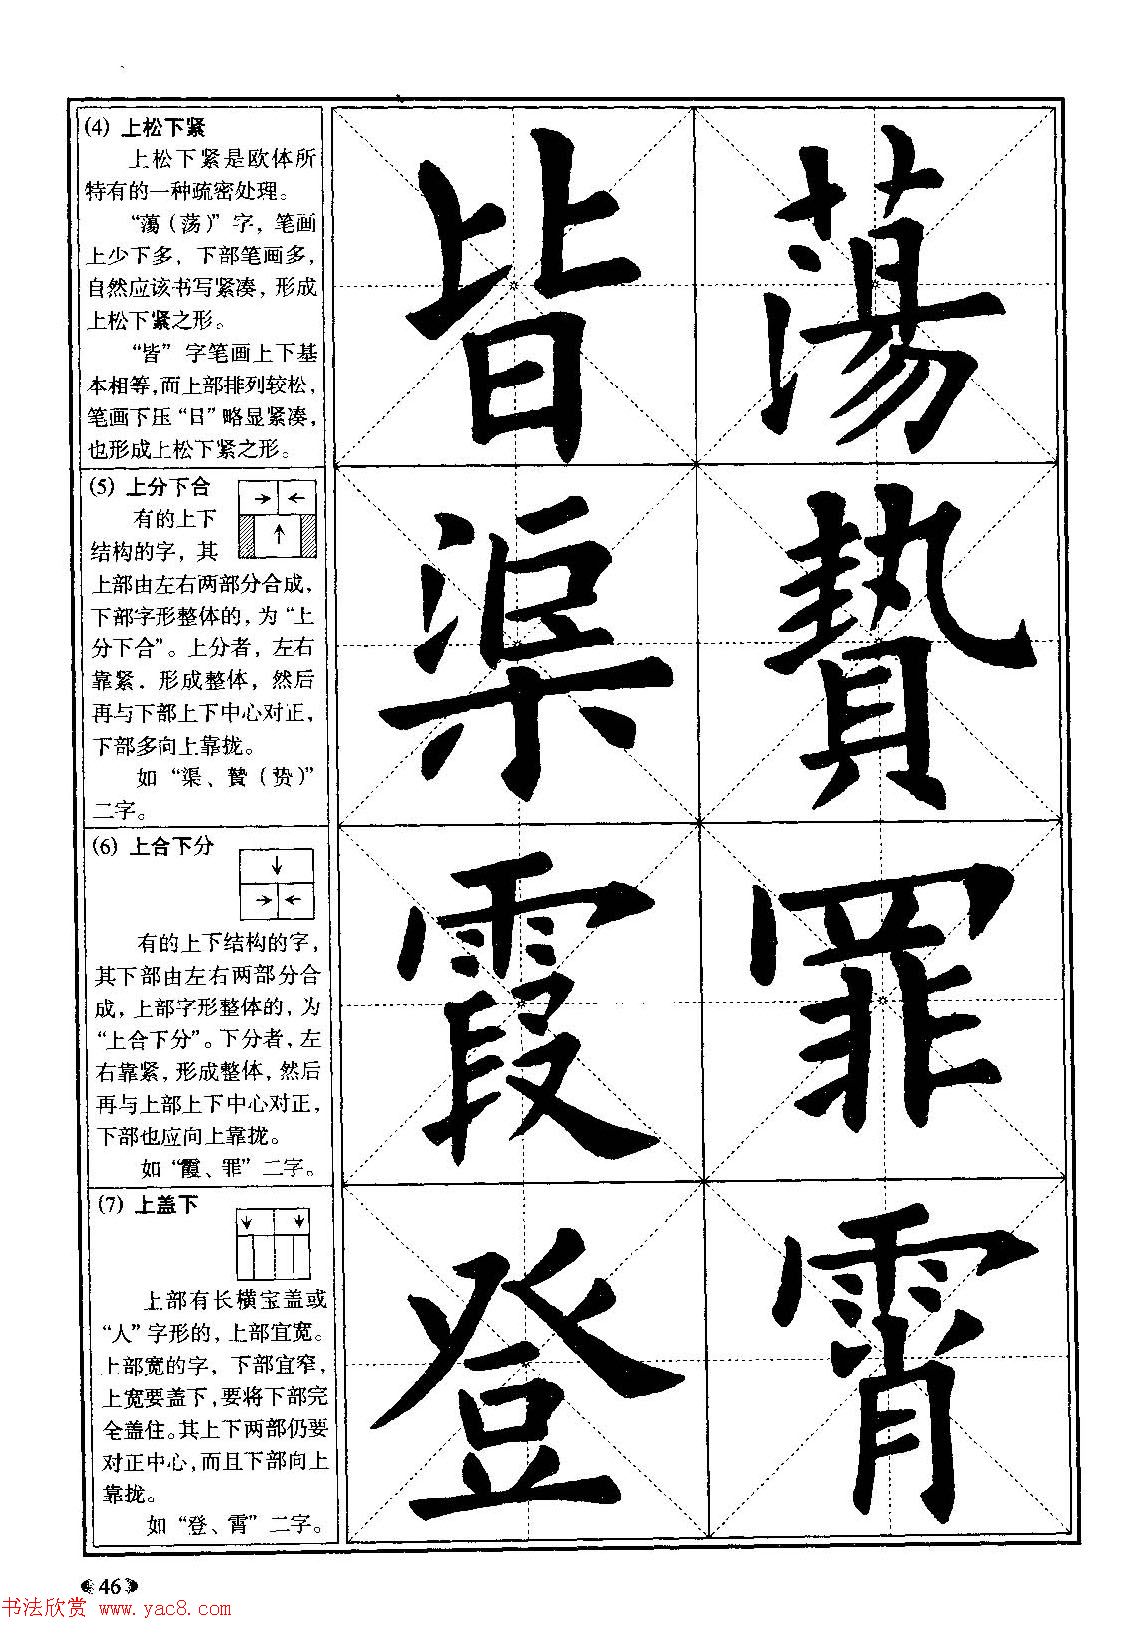 (4) 上松下紧
上松下紧是欧体所
特有的一种疏密处理。
“蕩(荡)”字，笔画
上少下多，下部笔画多，
自然应该书写紧凑，形成
上松下紧之形。
“皆”字笔画上下基
本相等，而上部排列较松，
笔画下压“日”略显紧凑，
也形成上松下紧之形。
皆 蕩
(5) 上分下合
有的上下
结构的字，其
上部由左右两部分合成，
下部字形整体的，为“上
分下合”。上分者，左右
靠紧．形成整体，然后
再与下部上下中心对正，
下部多向上靠拢。
如“渠、贄(贽)”
二字。
渠 贄
(6) 上合下分
有的上下结构的字，
其下部由左右两部分合
成，上部字形整体的，为
“上合下分”。下分者，左
右靠紧，形成整体，然后
再与上部上下中心对正，
下部也应向上靠拢。
如“霞、罪”二字。
霞 罪
(7) 上盖下
上部有长横宝盖或
“人”字形的，上部宜宽。
上部宽的字，下部宜窄，
上宽要盖下，要将下部完
全盖住。其上下两部仍要
对正中心，而且下部向上
靠拢。
如“登、霄”二字。
登 霄
46
书法欣赏 www.yac8.com